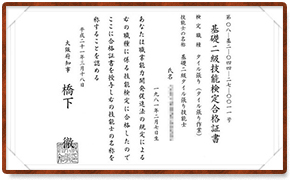 第〇八-基二-〇四一-二七-〇〇一一号
基礎二級技能検定合格証書
検定職種 タイル張り(タイル張り作業)
技能士の名称 基礎二級タイル張り技能士
氏名
一九八一年二月七日生
あなたは職業能力開発促進法の規定による
右の職種に係る技能検定に合格したので
ここに合格証書を授与し右の技能士の名称を
称することを認める
平成二十一年二月十八日
大阪府知事 橋下 徹